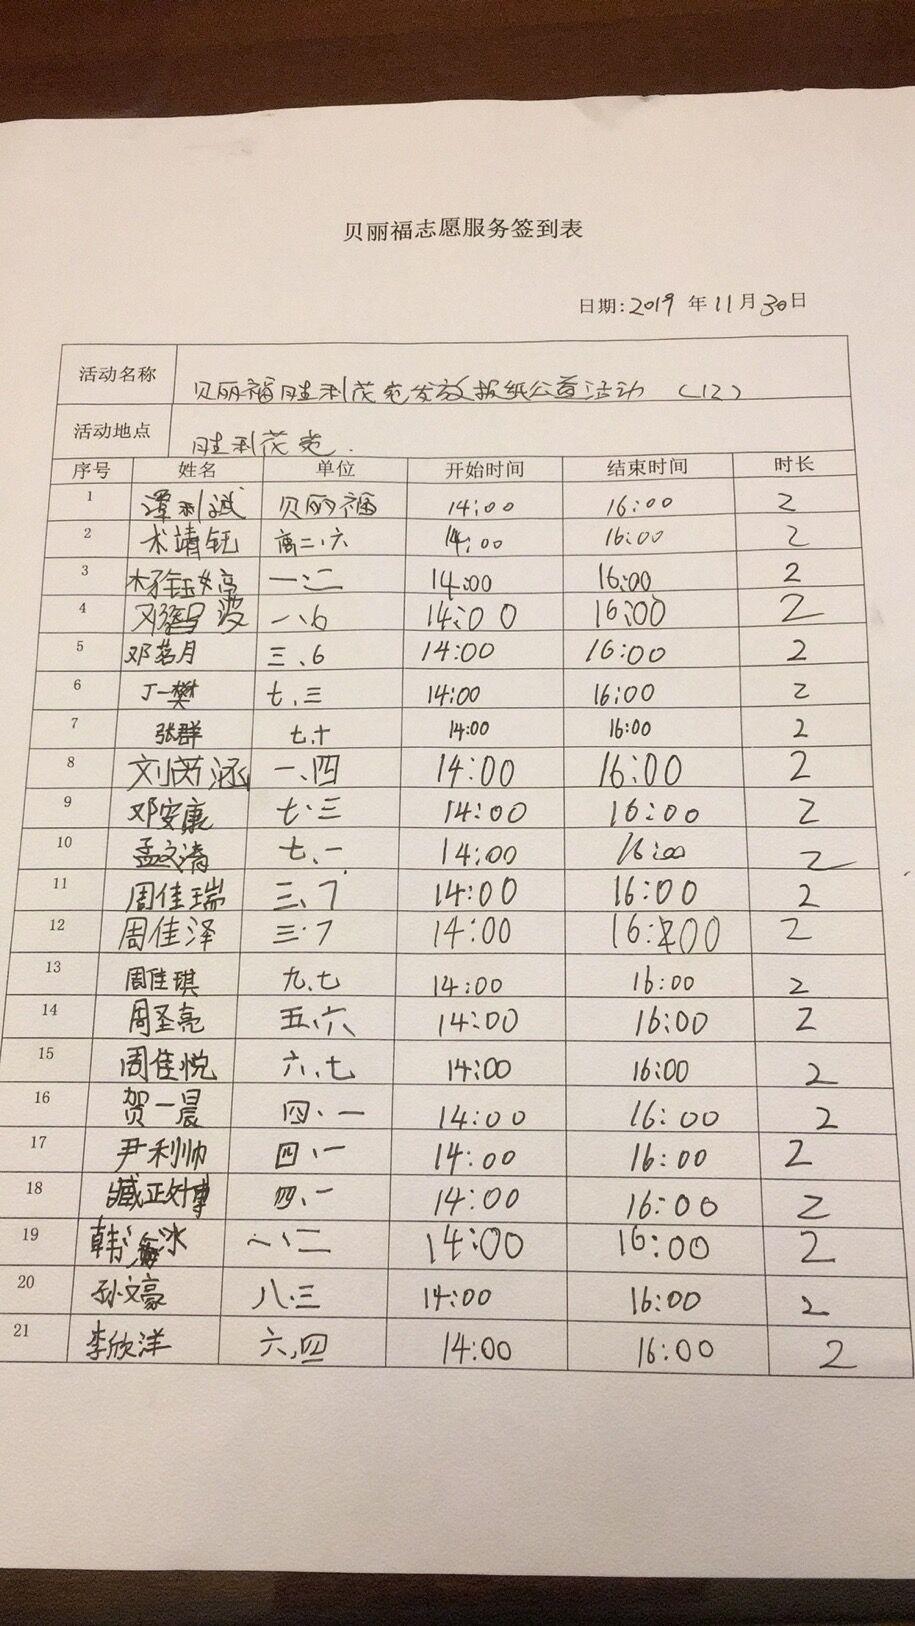 贝丽福志愿服务签到表
日期:2019 年 11 月 30 日
活动名称 贝丽福胜利花苑发放报纸公益活动 (12)
活动地点 胜利花苑.
序号 姓名 单位 开始时间 结束时间 时长
1 谭利诚 贝丽福 14:00 16:00 2
2 术靖钰 高二、六 14:00 16:00 2
3 杨钰婷 一、二 14:00 16:00 2
4 邓智 一、6 14:00 16:00 2
5 邓茗月 三、6 14:00 16:00 2
6 丁一樊 七、三 14:00 16:00 2
7 张群 七、十 14:00 16:00 2
8 刘芮涵 一、四 14:00 16:00 2
9 邓安康 七、三 14:00 16:00 2
10 孟文清 七、一 14:00 16:00 2
11 周佳瑞 三、7 14:00 16:00 2
12 周佳泽 三·7 14:00 16:00 2
13 周佳琪 九、七 14:00 16:00 2
14 周圣亮 五、六 14:00 16:00 2
15 周佳悦 六、七 14:00 16:00 2
16 贺一晨 四、一 14:00 16:00 2
17 尹利帅 四、一 14:00 16:00 2
18 臧政博 四、一 14:00 16:00 2
19 韩冰 一、二 14:00 16:00 2
20 孙文豪 八、三 14:00 16:00 2
21 李欣洋 六、四 14:00 16:00 2